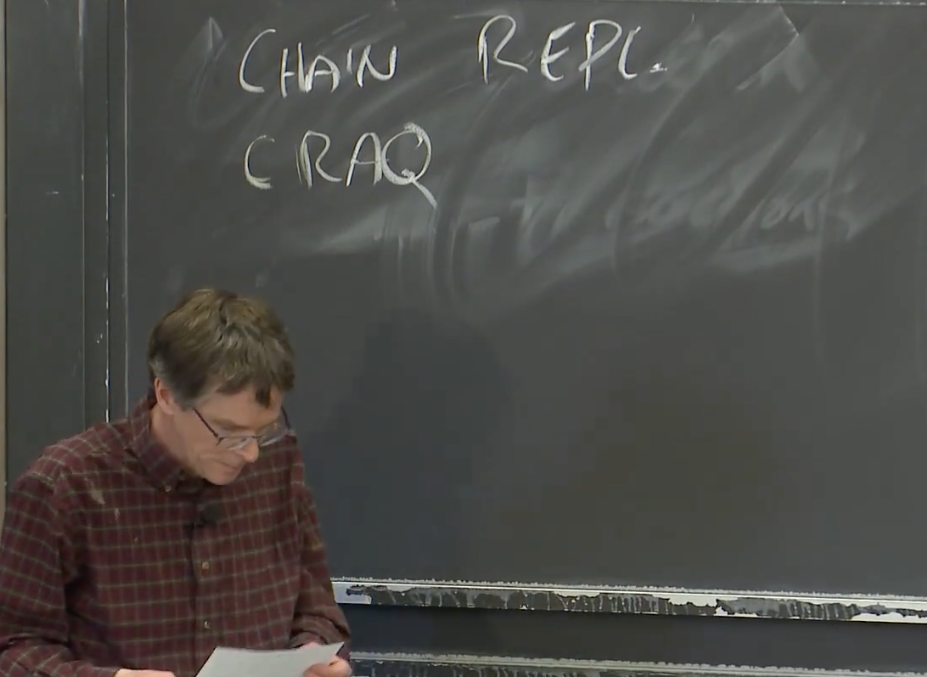 CHAIN REPL.
CRAQ